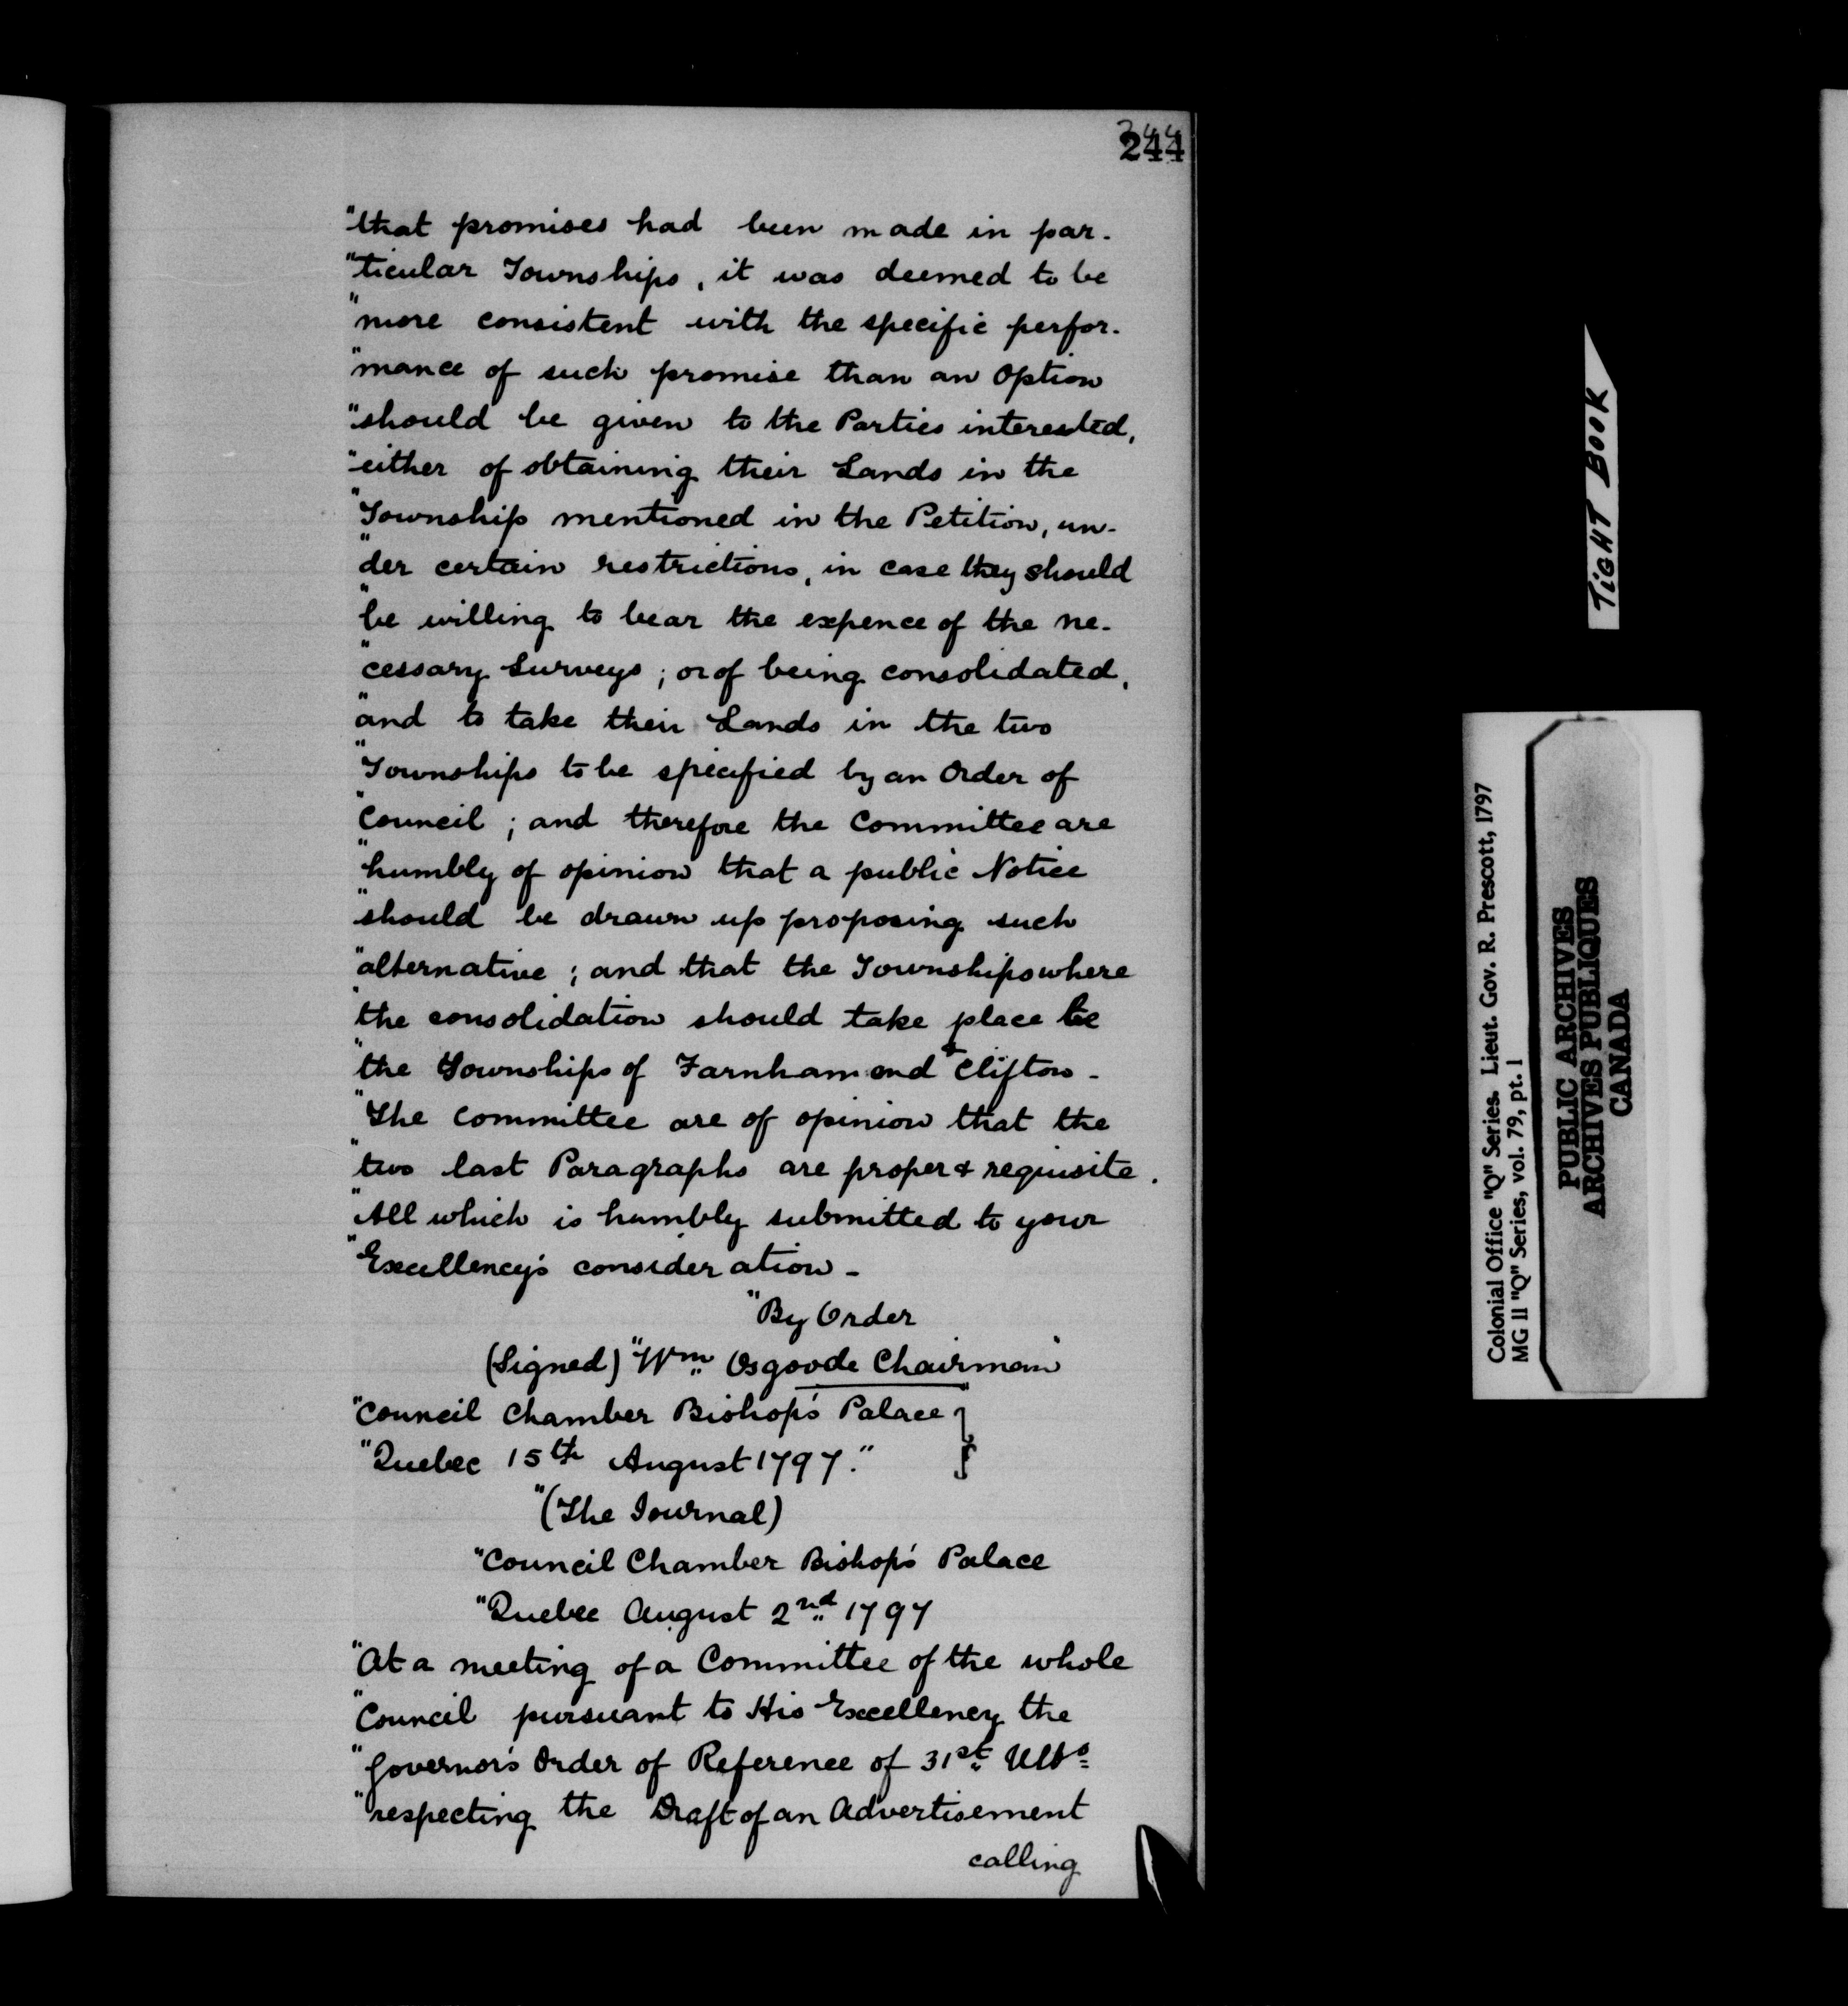 244
"that promises had been made in par-
"ticular Townships, it was deemed to be
"more consistent with the specific perfor-
"mance of such promise than an Option
"should be given to the Parties interested,
"either of obtaining their Lands in the
"Township mentioned in the Petition, un-
"der certain restrictions, in case they should
"be willing to bear the expence of the ne-
"cessary Surveys; or of being consolidated,
"and to take their Lands in the two
"Townships to be specified by an Order of
"Council; and therefore the Committee are
"humbly of opinion that a public Notice
"should be drawn up proposing such
"alternative; and that the Townships where
"the consolidation should take place be
"the Townships of Farnham and Clifton -
"The Committee are of opinion that the
"two last Paragraphs are proper & requisite.
"All which is humbly submitted to your
"Excellency's consideration -
"By Order
(Signed) "Wm Osgoode Chairman"
"Council Chamber Bishop's Palace
"Quebec 15th August 1797."
"(The Journal)
"Council Chamber Bishop's Palace
"Quebec August 2nd 1797
"At a meeting of a Committee of the whole
"Council pursuant to His Excellency the
"Governor's Order of Reference of 31st Ulto
"respecting the Draft of an Advertisement
calling
TIGHT BOOK
Colonial Office "Q" Series. Lieut. Gov. R. Prescott, 1797
MG 11 "Q" Series, vol. 79, pt. 1
PUBLIC ARCHIVES
ARCHIVES PUBLIQUES
CANADA